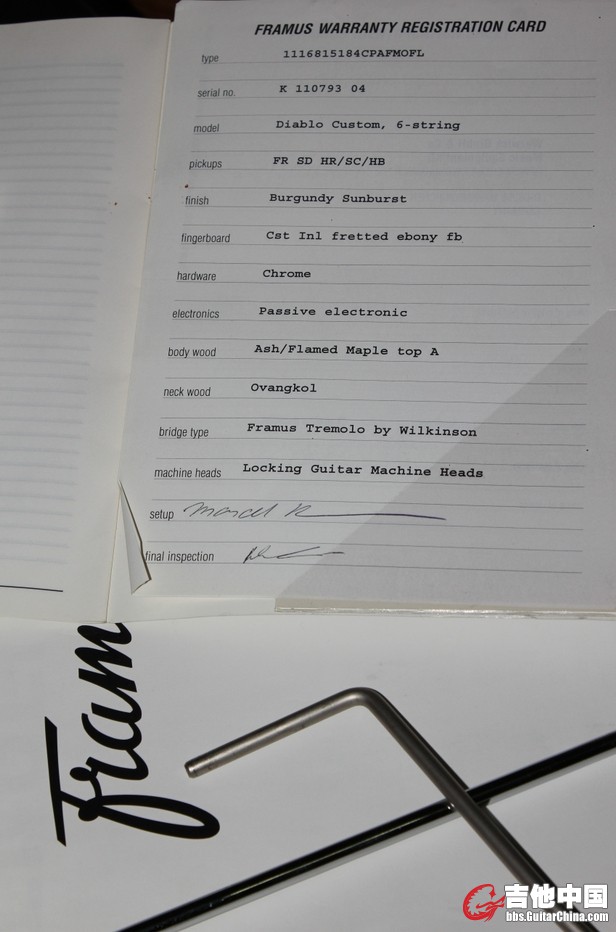 FRAMUS WARRANTY REGISTRATION CARD
type 1116815184CPAFMOFL
serial no. K 110793 04
model Diablo Custom, 6-string
pickups FR SD HR/SC/HB
finish Burgundy Sunburst
fingerboard Cst Inl fretted ebony fb
hardware Chrome
electronics Passive electronic
body wood Ash/Flamed Maple top A
neck wood Ovangkol
bridge type Framus Tremolo by Wilkinson
machine heads Locking Guitar Machine Heads
setup Marcel
final inspection
Fram
吉他中国
bbs.GuitarChina.com